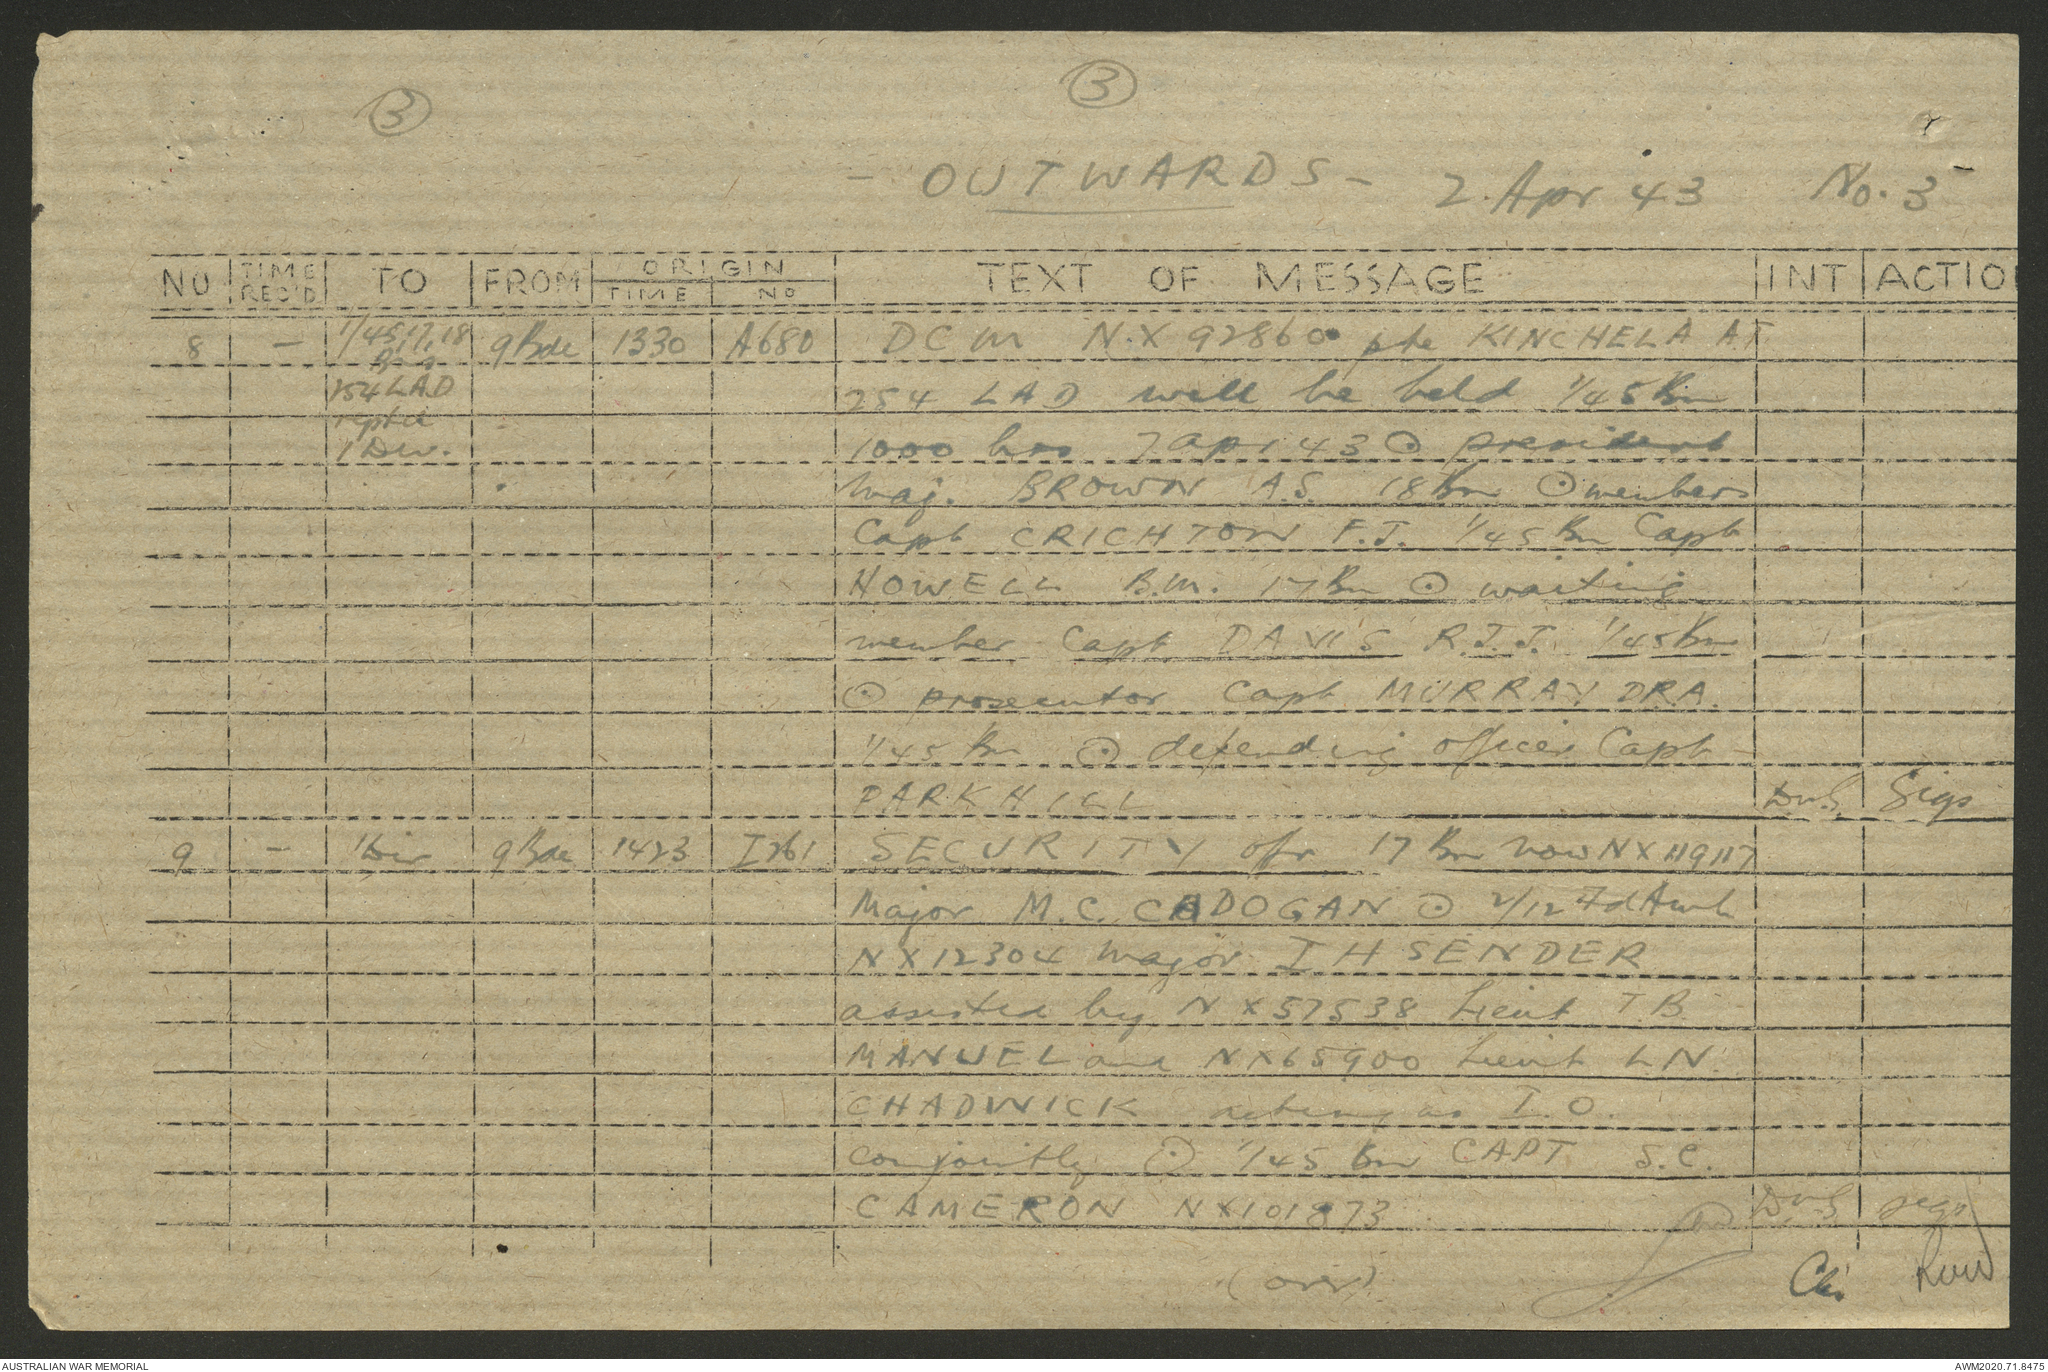 3
3
- OUTWARDS - 2 Apr 43 No. 3
NO TIME REC'D TO FROM ORIGIN TIME NO TEXT OF MESSAGE INT ACTIO
8 - 1/45, 17, 18 9 Bde 1330 A680 DCM NX 92860 pte KINCHELA A T
254 LAD 254 LAD will be held 1/45 Bn
reptd
1 Div. 1000 hrs 7 apr 43 ⊙ president
Maj. BROWN A.S. 18 Bn ⊙ members
Capt CRICHTON F.J. 1/45 Bn Capt
HOWELL B.M. 17 Bn ⊙ waiting
member Capt DAVIS R.J.J. 1/45 Bn
⊙ prosecutor Capt MURRAY DRA.
1/45 Bn ⊙ defending officer Capt
PARKHILL DvS Sigs
9 - 1 Div 9 Bde 1423 I261 SECURITY offr 17 Bn now NX119117
Major M.C. CADOGAN ⊙ 2/12 Fd Amb
NX12304 Major I H SENDER
assisted by NX57538 Lieut T.B.
MANUEL and NX65900 Lieut L N.
CHADWICK acting as I.O.
conjointly ⊙ 1/45 Bn CAPT S.C.
CAMERON NX101873 DvS sigs
(over)
AUSTRALIAN WAR MEMORIAL
AWM2020.71.8475